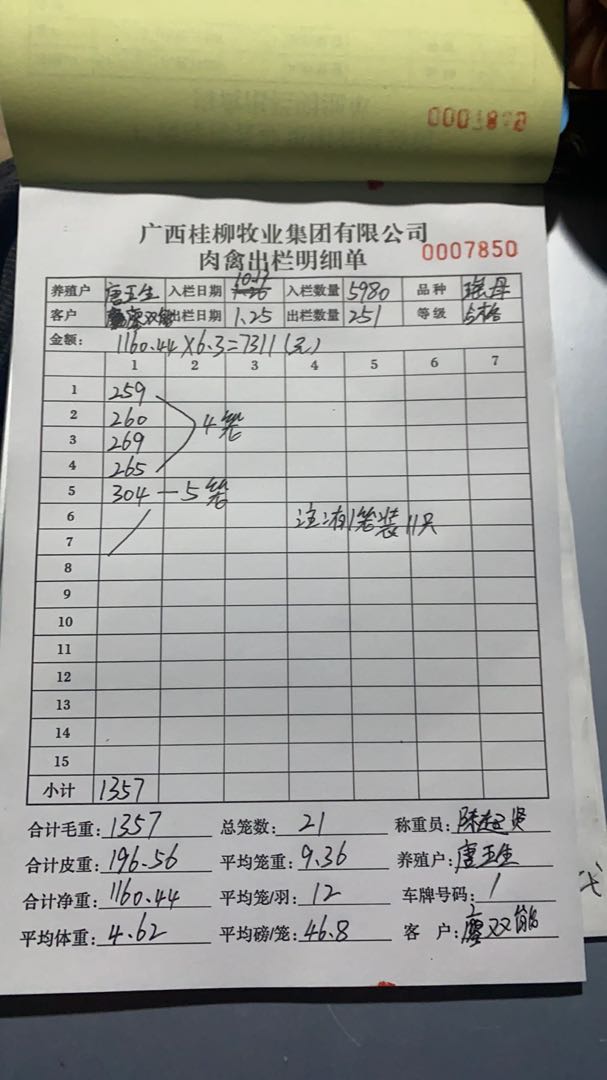 广西桂柳牧业集团有限公司
肉禽出栏明细单
0007850
养殖户 唐玉生 入栏日期 10.17 入栏数量 5980 品种 瑶母
客户 廖双能 出栏日期 1.25 出栏数量 251 等级 合格
金额: 1160.44×6.3=7311(元)
1 2 3 4 5 6 7
1 259
2 260 4笼
3 269
4 265
5 304 — 5笼
6 注:有1笼装11只
7
8
9
10
11
12
13
14
15
小计 1357
合计毛重: 1357 总笼数: 21 称重员: 陈超贤
合计皮重: 196.56 平均笼重: 9.36 养殖户: 唐玉生
合计净重: 1160.44 平均笼/羽: 12 车牌号码: 1
平均体重: 4.62 平均磅/笼: 46.8 客户: 廖双能